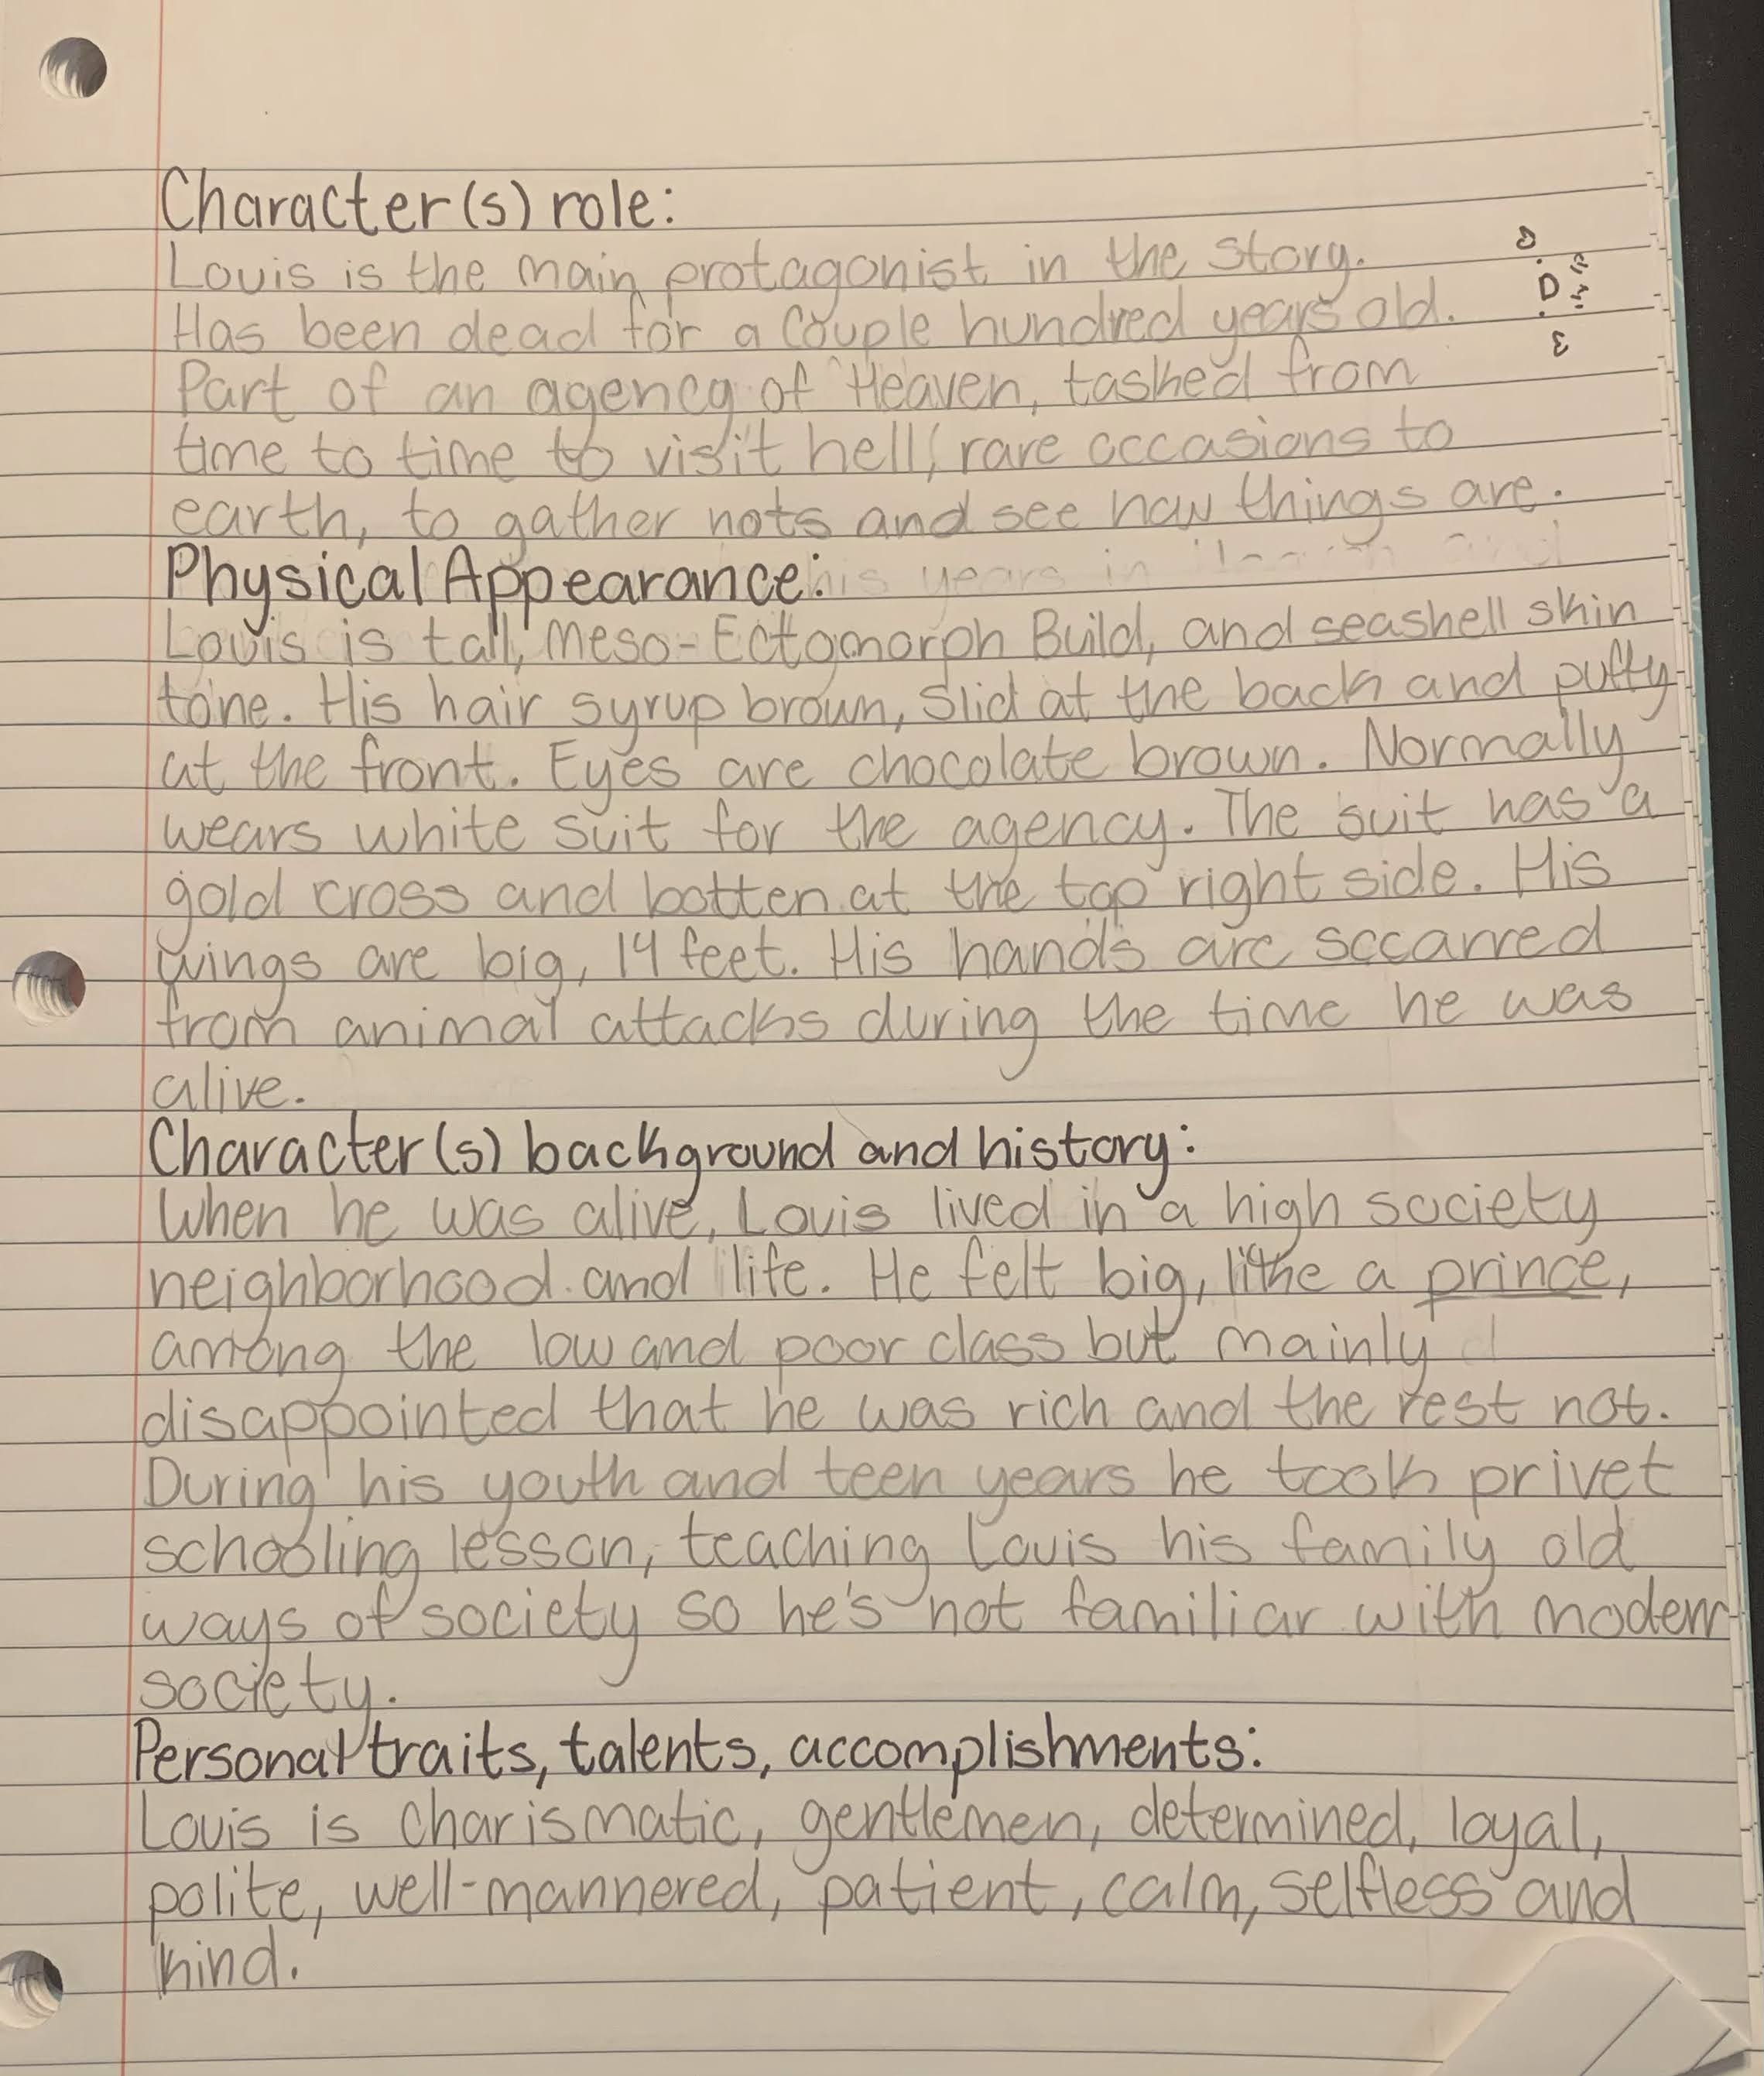 Character(s) role:
Louis is the main protagonist in the story.
Has been dead for a couple hundred years old.
Part of an agency of Heaven, tasked from
time to time to visit hell, rare occasions to
earth, to gather nots and see how things are.
Physical Appearance: his years in
Louis is tall, Meso-Ectomorph Build, and seashell skin
tone. His hair syrup brown, slid at the back and puffy
at the front. Eyes are chocolate brown. Normally
wears white suit for the agency. The suit has a
gold cross and botten at the top right side. His
wings are big, 14 feet. His hands are sccarred
from animal attacks during the time he was
alive.
Character(s) background and history:
When he was alive, Louis lived in a high society
neighborhood and life. He felt big, like a prince,
among the low and poor class but mainly
disappointed that he was rich and the rest not.
During his youth and teen years he took privet
schooling lesson, teaching Louis his family old
ways of society so he's not familiar with modern
society.
Personal traits, talents, accomplishments:
Louis is charismatic, gentlemen, determined, loyal,
polite, well-mannered, patient, calm, selfless and
kind.